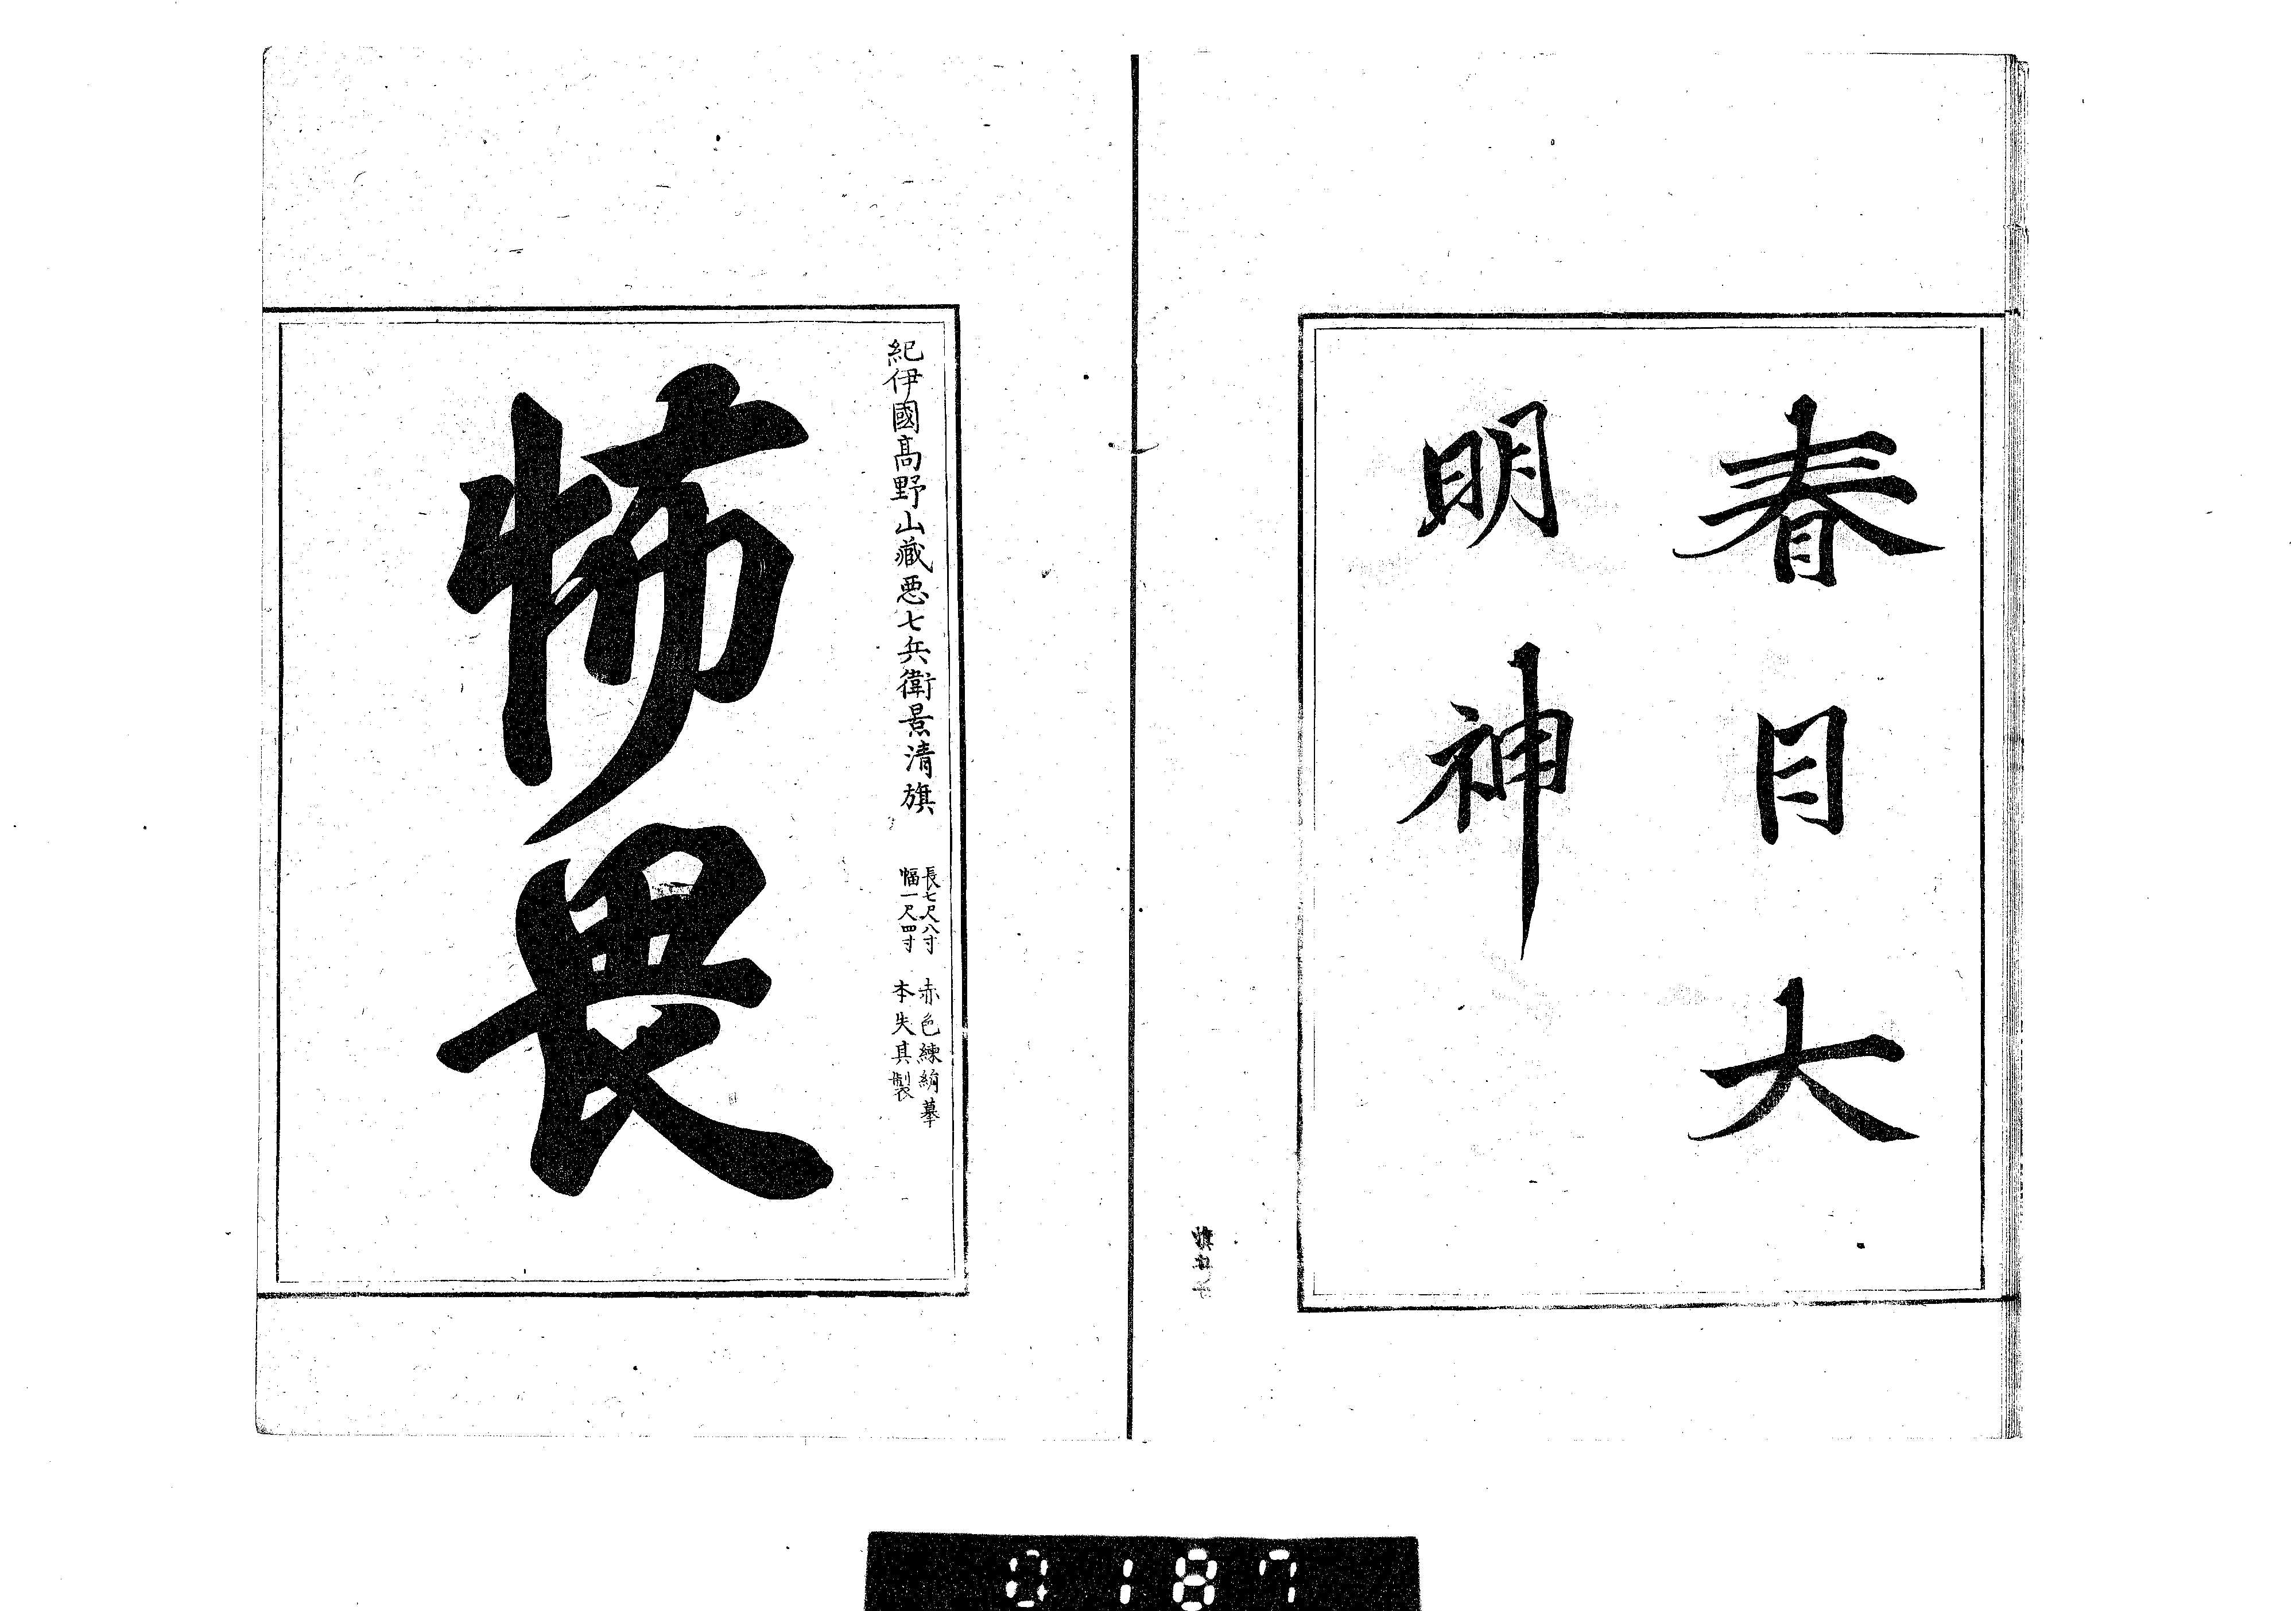 春日大
明神
紀伊國髙野山藏悪七兵衛景清旗
長七尺八寸
幅一尺四寸
赤色練絹摹
本失其製
怖畏
0187